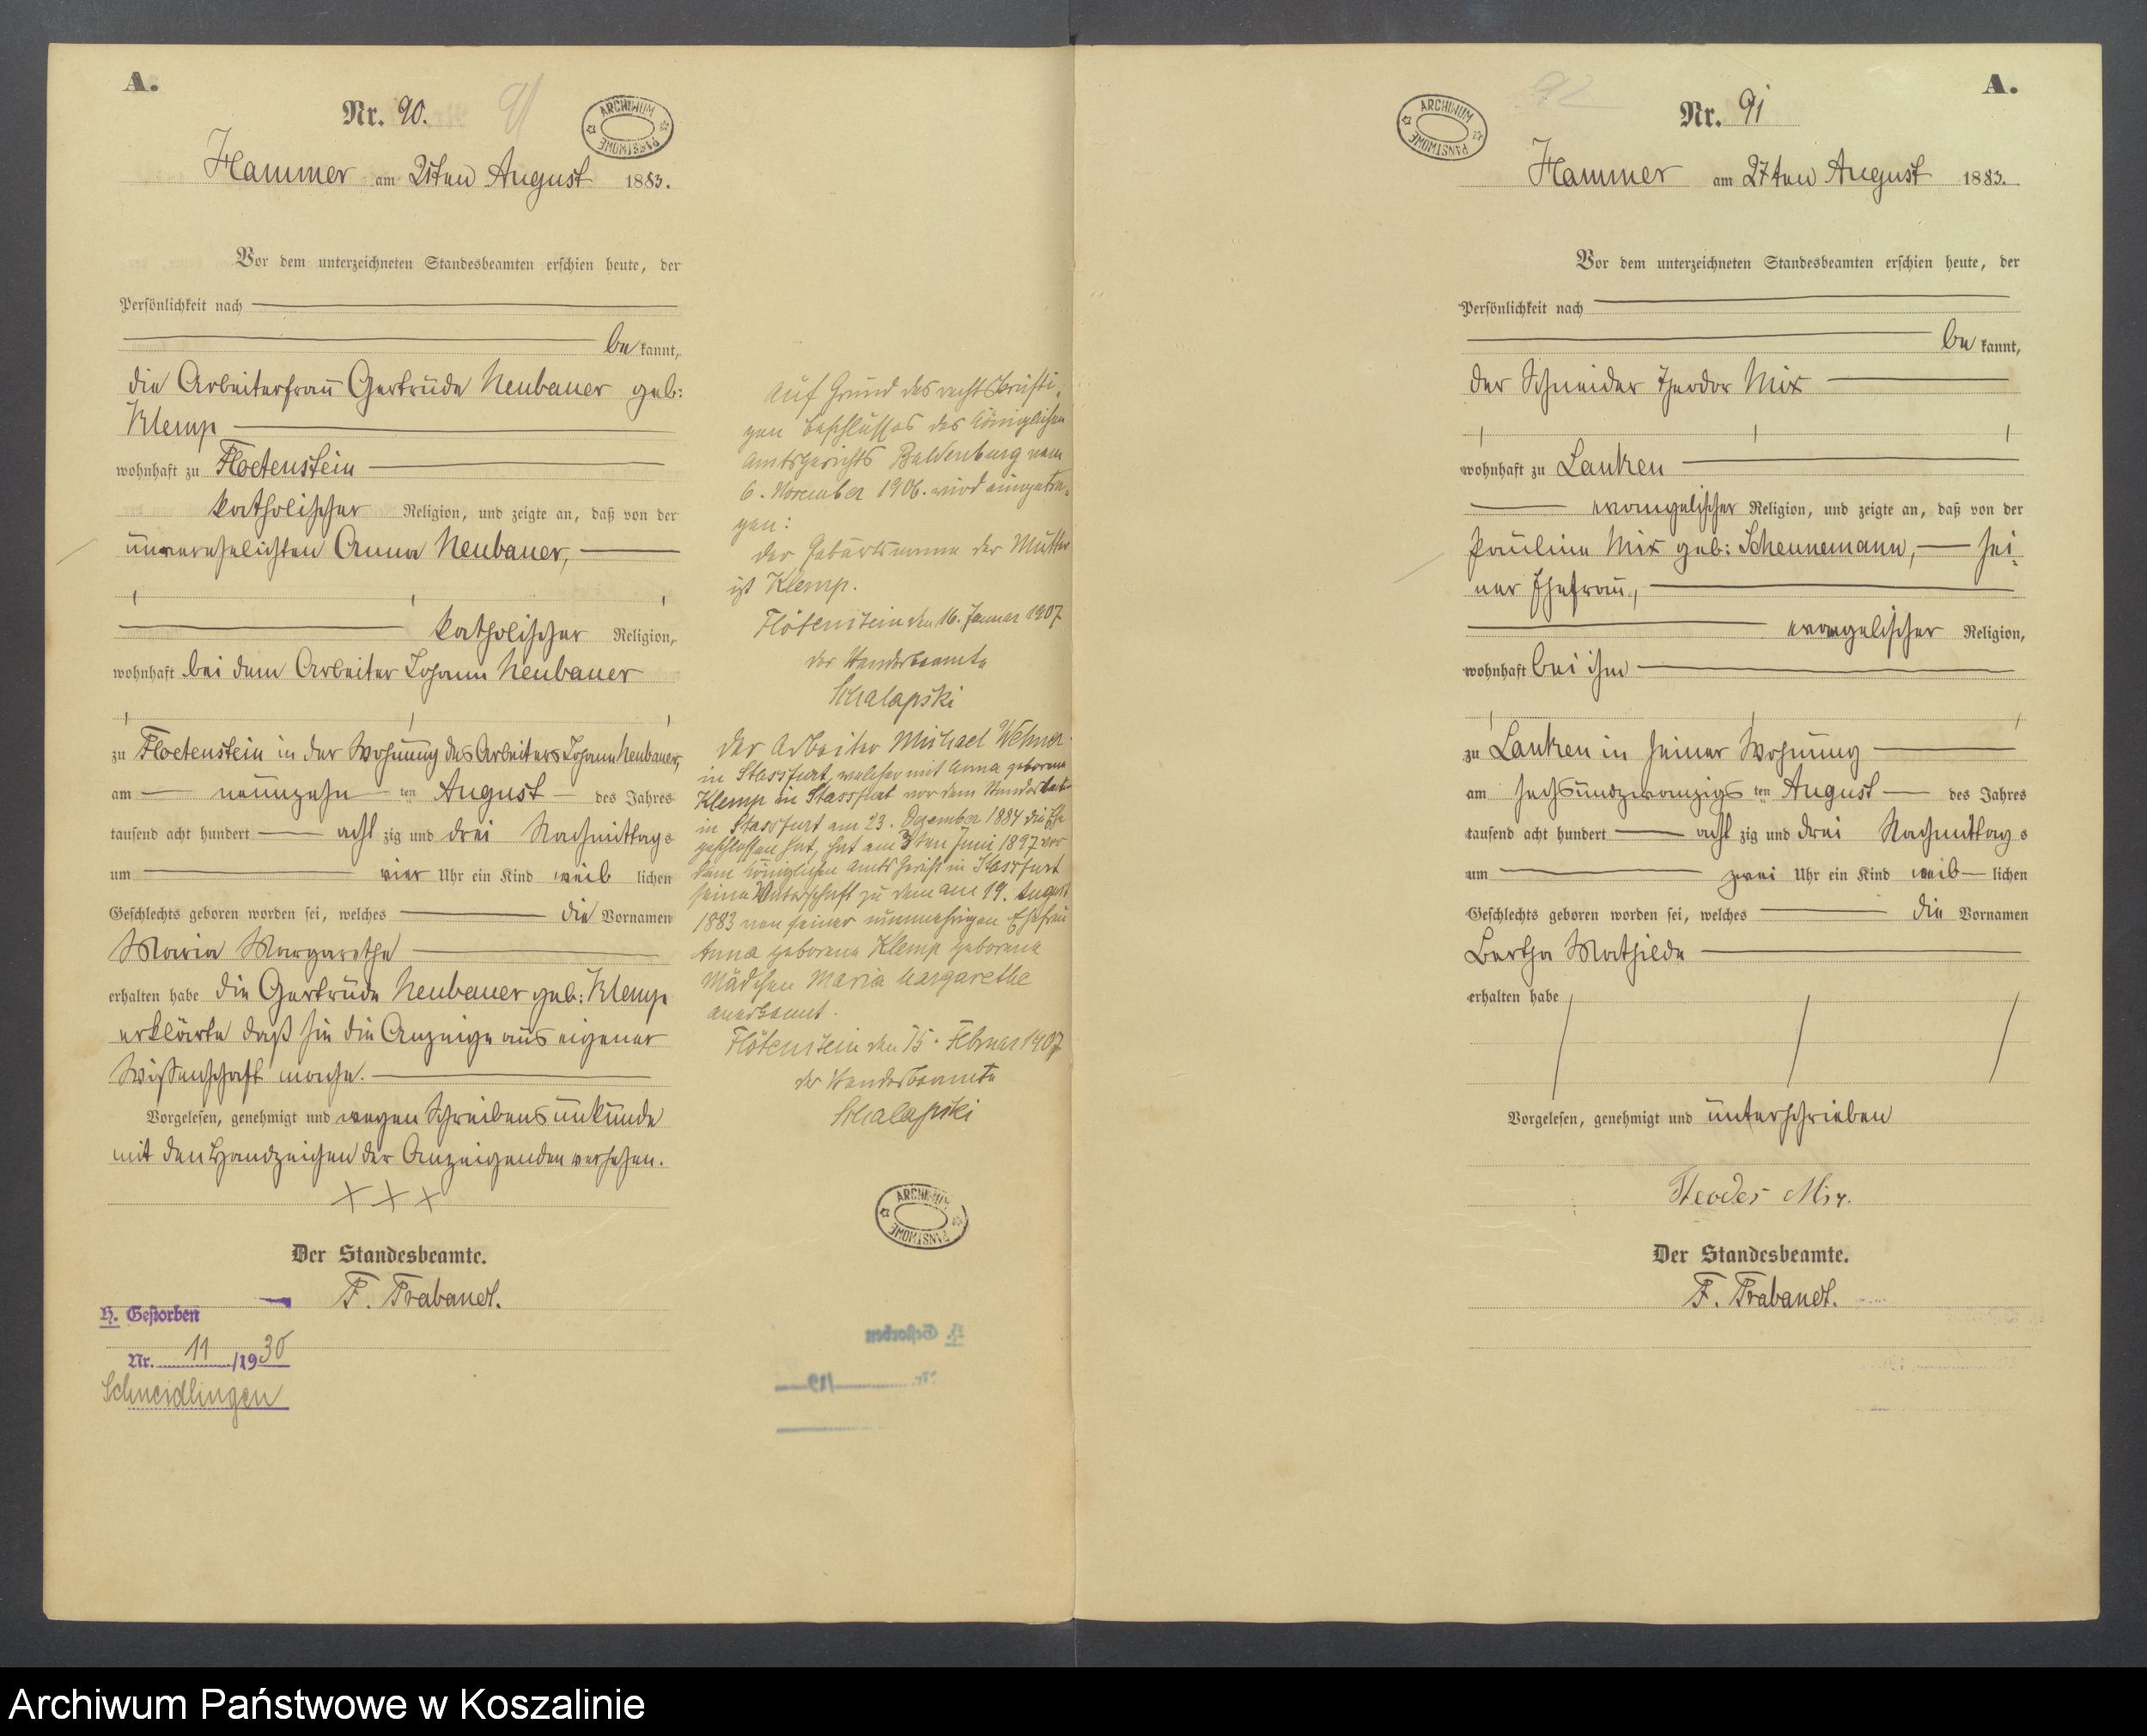 A.
Nr. 90.
91
ARCHIWUM PAŃSTWOWE
Hammer am 21ten August 1883.
Vor dem unterzeichneten Standesbeamten erschien heute, der
Persönlichkeit nach
bekannt,
die Arbeiterfrau Gertrude Neubauer geb:
Klemp
wohnhaft zu Floetenstein
katholischer Religion, und zeigte an, daß von der
unverehelichten Anna Neubauer,
katholischer Religion,
wohnhaft bei dem Arbeiter Johann Neubauer
zu Floetenstein in der Wohnung des Arbeiters Johann Neubauer,
am neunzehn ten August des Jahres
tausend acht hundert acht zig und drei Nachmittags
um vier Uhr ein Kind weib lichen
Geschlechts geboren worden sei, welches die Vornamen
Maria Margarethe
erhalten habe die Gertrude Neubauer geb: Klemp
erklärte daß sie die Anzeige aus eigener
Wissenschaft mache.
Vorgelesen, genehmigt und wegen Schreibensunkunde
mit den Handzeichen der Anzeigenden versehen.
+ + +
Der Standesbeamte.
F. Trabandt.
H. Gestorben
Nr. 11 /1930
Schneidlingen
Auf Grund des rechtskräfti-
gen Beschlusses des Königlichen
Amtsgerichts Baldenburg vom
6. November 1906. wird eingetra-
gen:
der Geburtsname der Mutter
ist Klemp.
Flötenstein den 16. Januar 1907
der Standesbeamte
Schalapski
Der Arbeiter Michael Wehner
in Stassfurt, welcher mit Anna geborene
Klemp in Stassfurt vor dem Standesbeamten
in Stassfurt am 23. Dezember 1884 die Ehe
geschlossen hat, hat am 3ten Juni 1897 vor
dem Königlichen Amtsgericht in Stassfurt
seine Vaterschaft zu dem am 19. August
1883 von seiner nunmehrigen Ehefrau
Anna geborene Klemp geborene
Mädchen Maria Margarethe
anerkannt.
Flötenstein den 15. Februar 1907
der Standesbeamte
Schalapski
ARCHIWUM PAŃSTWOWE
A.
92
ARCHIWUM PAŃSTWOWE
Nr. 91
Hammer am 27ten August 1883.
Vor dem unterzeichneten Standesbeamten erschien heute, der
Persönlichkeit nach
bekannt,
der Schneider Theodor Mix
wohnhaft zu Lanken
evangelischer Religion, und zeigte an, daß von der
Pauline Mix geb: Scheunemann, sei-
ner Ehefrau,
evangelischer Religion,
wohnhaft bei ihm
zu Lanken in seiner Wohnung
am sechsundzwanzigs ten August des Jahres
tausend acht hundert acht zig und drei Nachmittags
um zwei Uhr ein Kind weib lichen
Geschlechts geboren worden sei, welches die Vornamen
Bertha Mathilde
erhalten habe
Vorgelesen, genehmigt und unterschrieben
Theodor Mix.
Der Standesbeamte.
F. Trabandt.
Archiwum Państwowe w Koszalinie